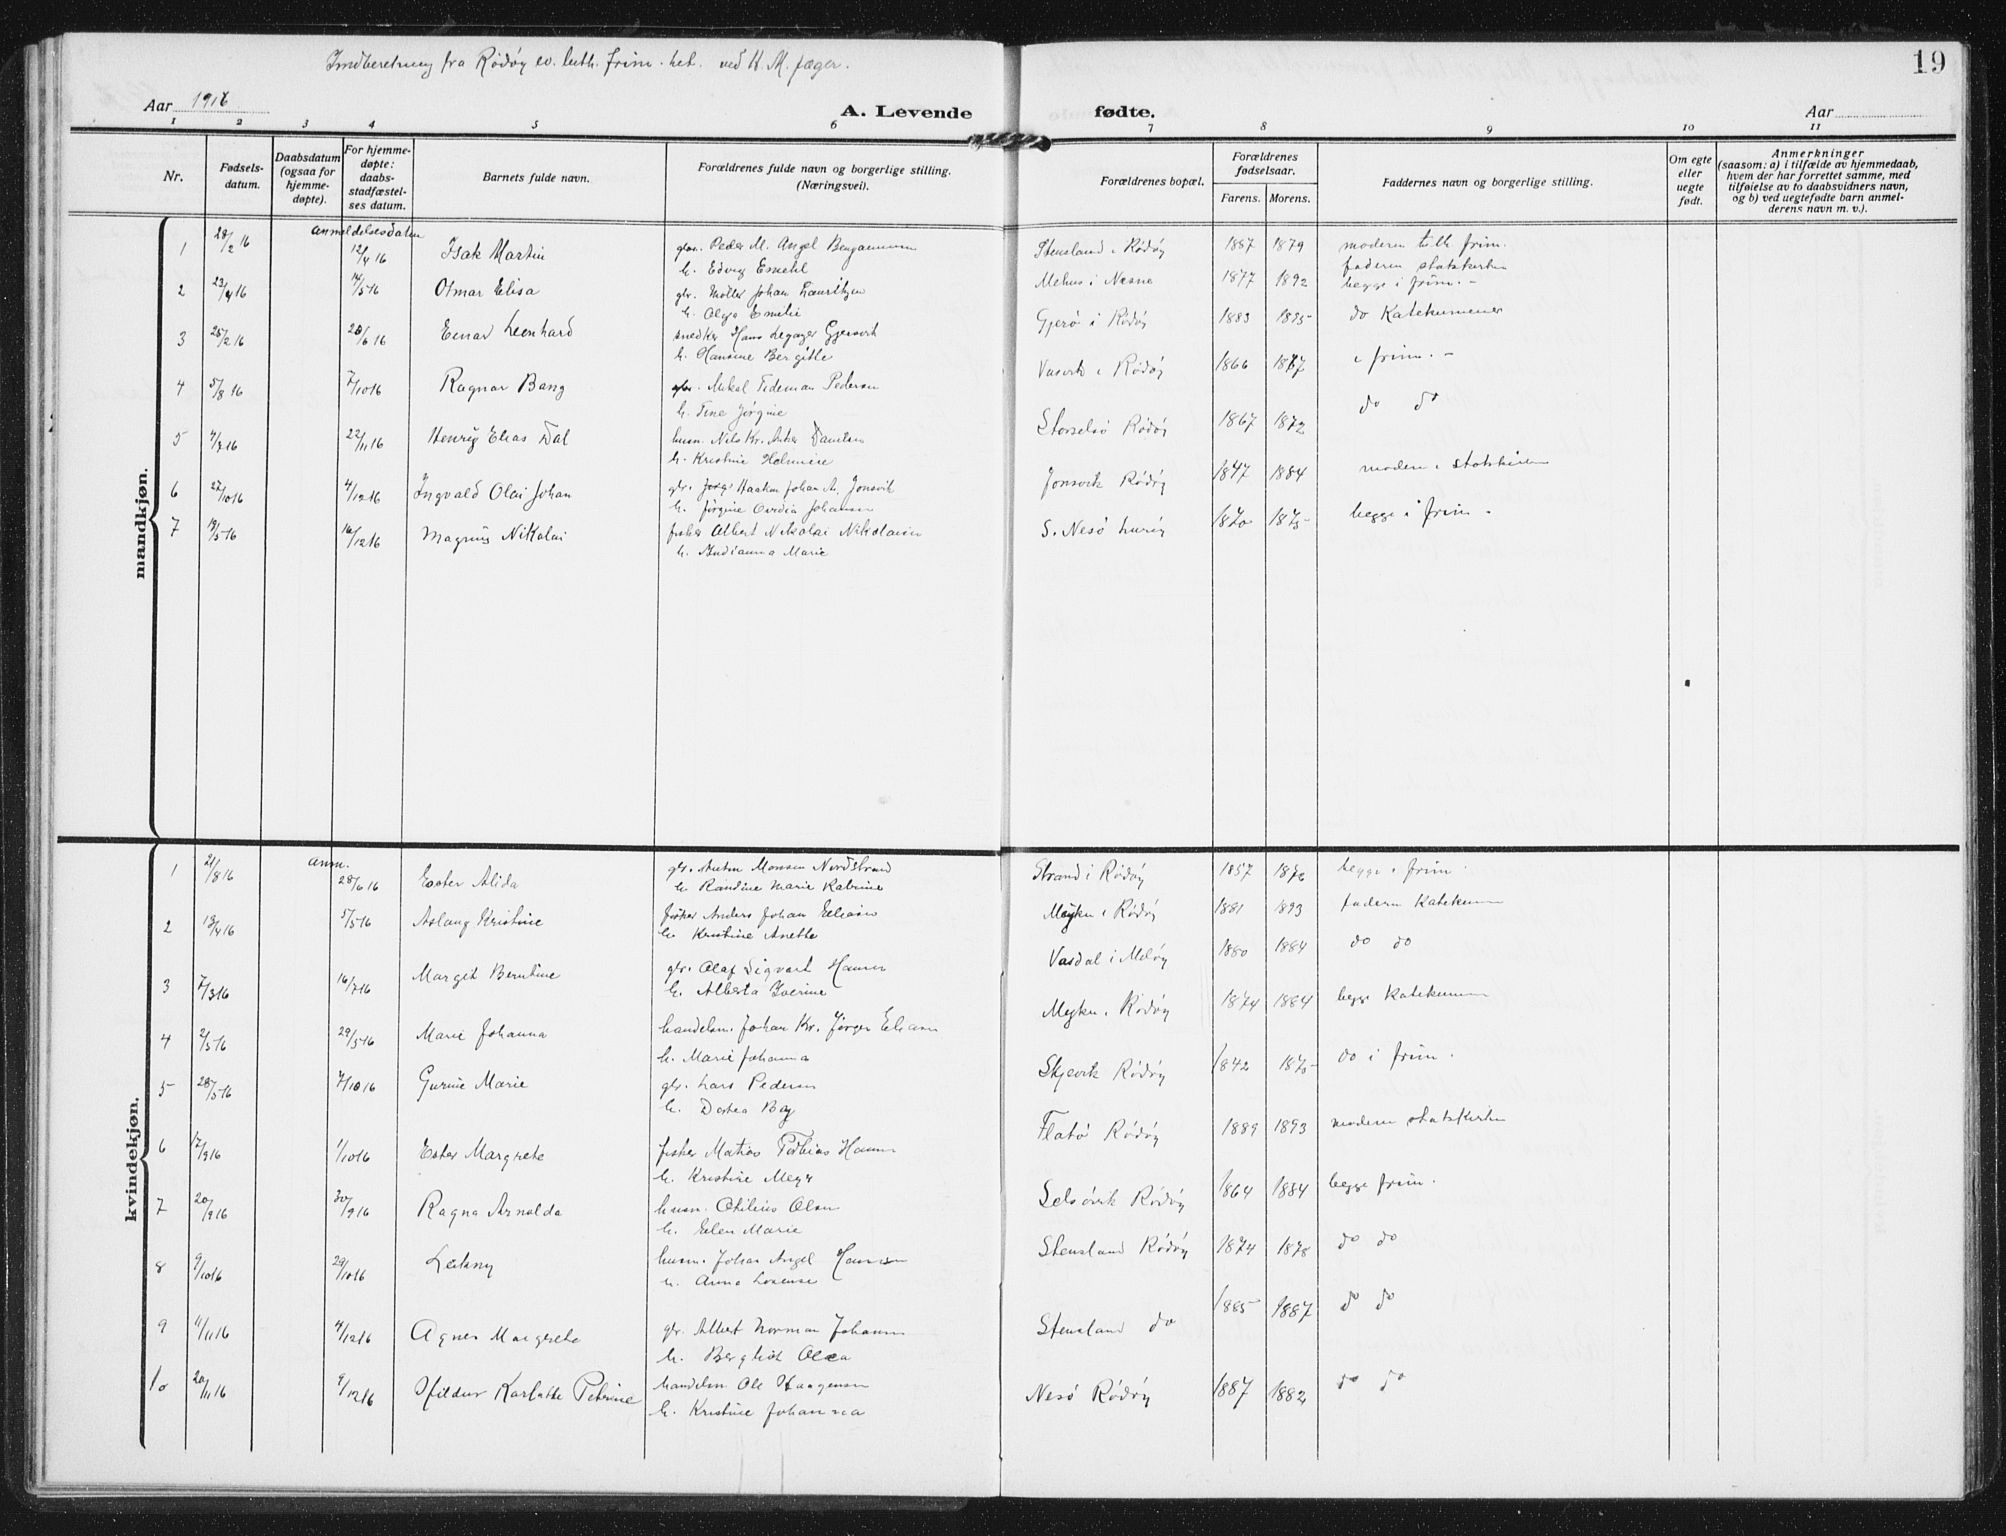 Indberetning fra Rödöy ev. luth. frim. het. ved H. M. Jæger.
19
Aar 1916
A. Levende fødte.
Aar
1 2 3 4 5 6 7 8 9 10 11
Nr.
Fødsels-
datum.
Daabsdatum
(ogsaa for
hjemme-
døpte).
For hjemme-
døpte:
daabs-
stadfæstel-
ses datum.
Barnets fulde navn.
Forældrenes fulde navn og borgerlige stilling.
(Næringsvei).
Forældrenes bopæl.
Forældrenes
fødselsaar.
Farens. Morens.
Faddernes navn og borgerlige stilling.
Om egte
eller
uegte
født.
Anmerkninger
(saasom: a) i tilfælde av hjemmedaab,
hvem der har forrettet samme, med
tilføielse av to daabsvidners navn,
og b) ved uegtefødte barn anmel-
derens navn m. v.).
mandkjøn.
anmeldelsesdatum
1 28/2 16 12/4 16 Isak Martin gbr. Peder M. Angel Benjaminsen Stensland i Rödöy 1857 1879 moderen luth. frim.
h. Edvig Emelie faderen statskirken
2 23/4 16 14/5 16 Otmar Elisa gbr. Möller Johan Lauritzen Mehus i Nesne 1877 1892 begge i frim. -
h. Olga Emelie
3 25/2 16 28/6 16 Einar Leonhard snedker Hans Gjersvik Gjerö i Rödöy 1883 1895 do Katekumener
h. Hansine Bergitte
4 5/8 16 7/10 16 Ragnar Bang gbr. Mikal Tideman Pedersen Vasvik i Rödöy 1866 1877 i frim. -
h. Tine Jörgine
5 4/7 16 22/11 16 Henrÿ Elias Dal husm. Nils Kr. Anker Danielsen Storselsö Rödöy 1867 1872 do do
h. Kristine Helmine
6 27/10 16 4/12 16 Ingvald Olai Johan gbr. Haakon Johan A. Jonsvik Jonsvik Rödöy 1847 1884 modern i statskirken
h. Jörgine Ovedia Johansen
7 18/5 16 16/12 16 Magnus Nikolai fisker Albert Nikolai Nikolaisen S. Nesö Luröy 1870 1875 begge i frim -
h. Indianna Marie
kvindekjøn.
anm.
1 21/8 16 28/6 16 Ester Alida gbr. Anton Monsen Nordstrand Strand i Rödöy 1857 1876 begge i frim.
h. Randine Marie Katrine
2 13/4 16 5/5 16 Aslaug Kristine fisker Anders Johan Eliasen Myken i Rödöy 1881 1893 faderen Katekumen
h. Kristine Anette
3 7/3 16 16/7 16 Margit Berntine gbr. Olaf Sigvart Hansen Vasdal i Melöy 1880 1884 do do
h. Alberta Iverine
4 2/5 16 29/5 16 Marie Johanna handelsm. Johan Kr. Jörgen Eliasen Myken i Rödöy 1874 1884 begge Katekumen
h. Marie Johanna
5 28/5 16 7/10 16 Gurine Marie gbr. Lars Pedersen Skjevik Rödöy 1842 1875 do i frim.
h. Dortea Bay
6 17/9 16 1/10 16 Ester Margrete fisker Matias Tobias Hansen Flatö Rödöy 1889 1893 modern statskirken
h. Kristine Meyr
7 20/9 16 30/9 16 Ragna Arnolda husm. Otilius Olsen Selsövik Rödöy 1864 1884 begge frim.
h. Elen Marie
8 9/10 16 29/10 16 Leikny husm. Johan Angel Hansen Stensland Rödöy 1874 1878 do do
h. Anna Lovense
9 11/11 16 4/12 16 Agnes Margrete gbr. Albert Norman Johansen Stensland do 1885 1887 do do
h. Bergliot Olea
10 20/11 16 9/12 16 Hildur Karlotte Petrine handelsm Ole Haagensen Nesö Rödöy 1887 1882 do do
h. Kristine Johanna